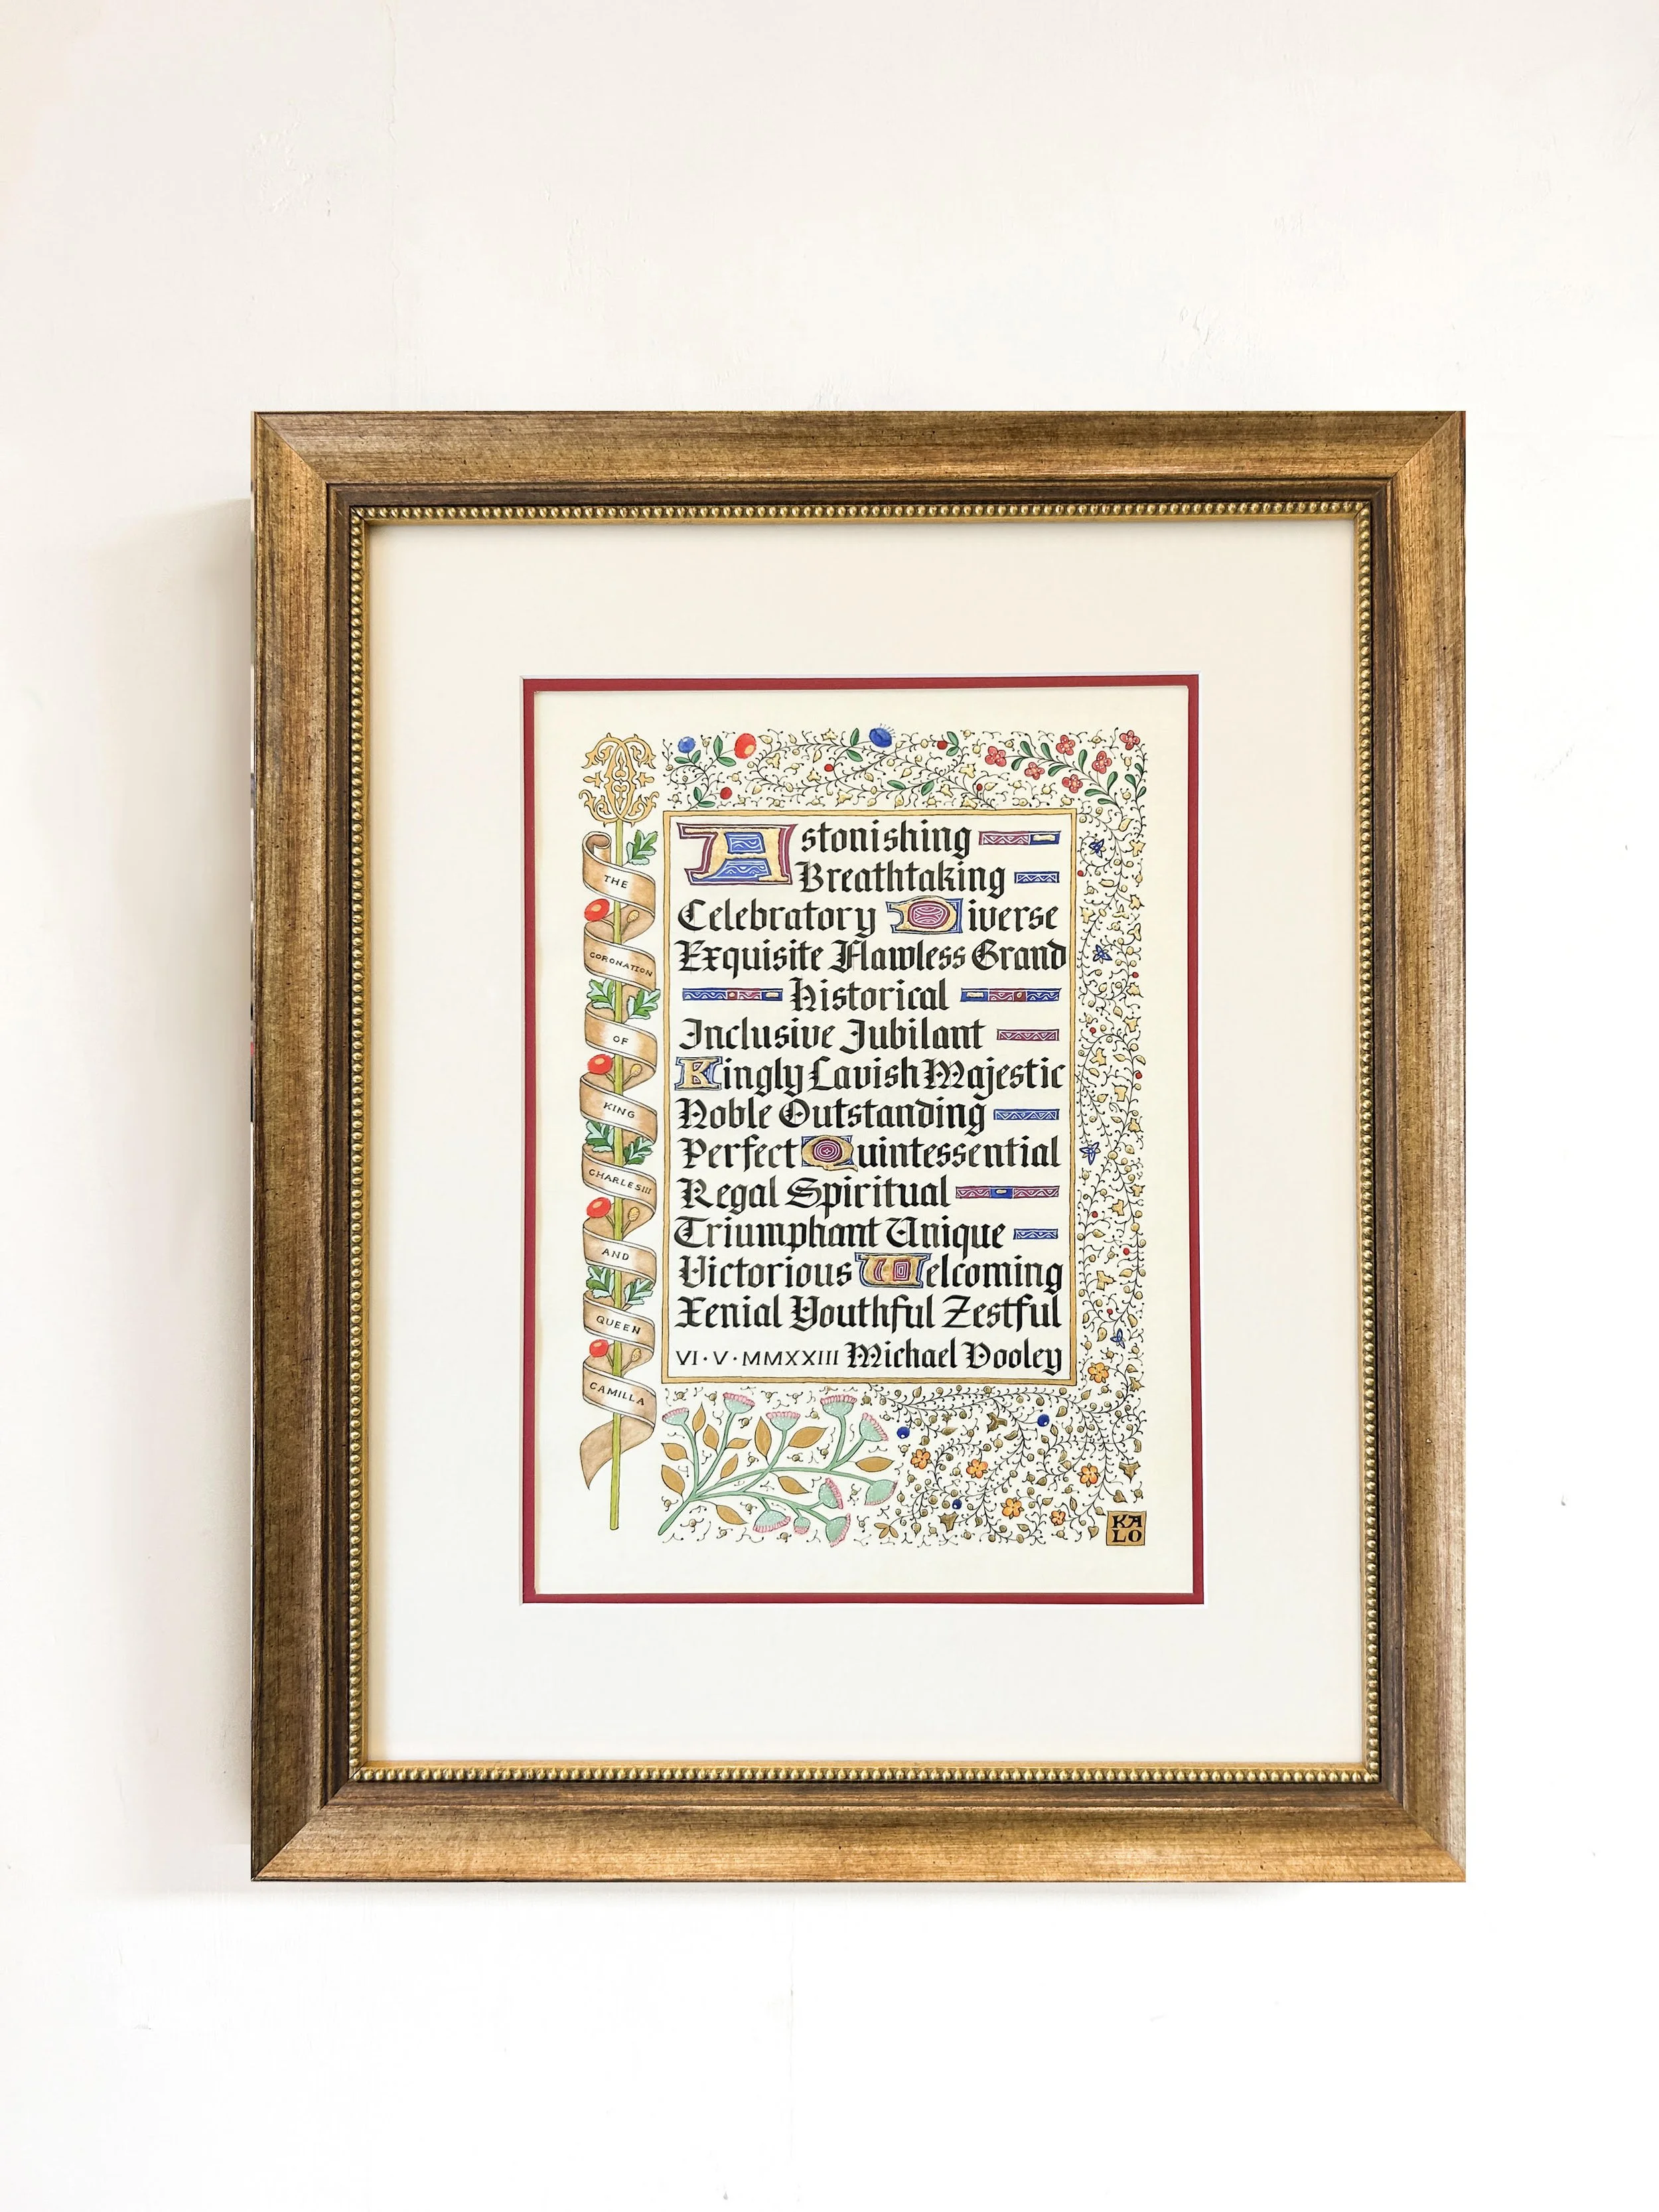 THE
CORONATION
OF
KING
CHARLES III
AND
QUEEN
CAMILLA
Astonishing
Breathtaking
Celebratory Diverse
Exquisite Flawless Grand
Historical
Inclusive Jubilant
Kingly Lavish Majestic
Noble Outstanding
Perfect Quintessential
Regal Spiritual
Triumphant Unique
Victorious Welcoming
Xenial Youthful Zestful
VI·V·MMXXIII Michael Dooley
KA
LO